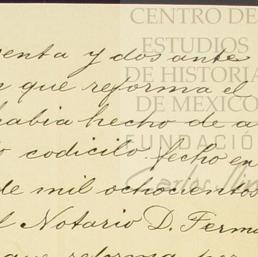 CENTRO DE
ESTUDIOS
DE HISTORIA
DE MEXICO
FUNDACIÓ
Carlos
enta y dos ante
que reforma el
habia hecho de a
codicilo fecho en
de mil ochocientos
l Notario D. Ferm
que reforma